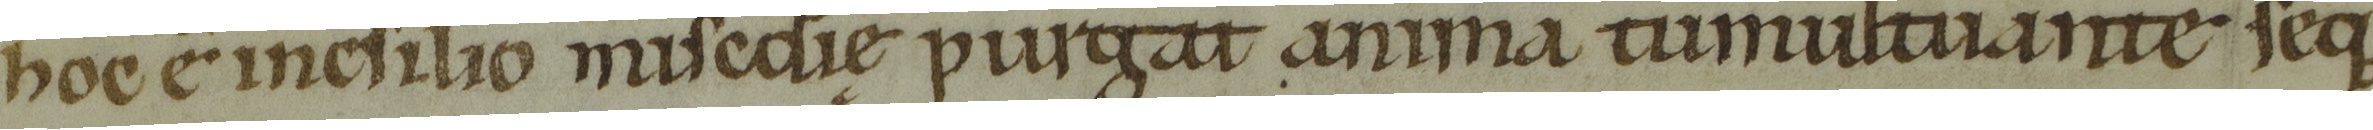 hoc e incsilio miscdię purgat anima tumultuante seq